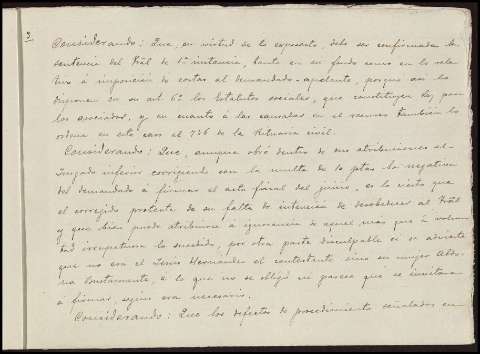 3
Considerando: Que, en virtud de lo expuesto, debe ser confirmada la
sentencia del Tribl de 1ª instancia, tanto en su fondo como en lo rela-
tivo á imposición de costas al demandado-apelante, porque así lo
dispone en su art 6º los Estatutos sociales, que constituyen ley para
los asociados, y en cuanto á las causadas en el recurso también lo
ordena en este caso el 736 de la Rituaria civil.
Considerando: Que, aunque obró dentro de sus atribuciones el
Juzgado inferior corrigiendo con la multa de 10 ptas la negativa
del demandado á firmar el acta final del juicio, es lo cierto que
el corregido protesta de su falta de intención de desobedecer al Tribl
y que bien puede atribuirse á ignorancia de aquel mas que á volun-
tad irrespetuosa lo sucedido, por otra parte disculpable si se advierte
que no era el Hernández el contestante sino su mujer
, á lo que no se obligó ni parece que se invitara
á firmar, según era necesario.
Considerando: Que los defectos de procedimiento señalados en